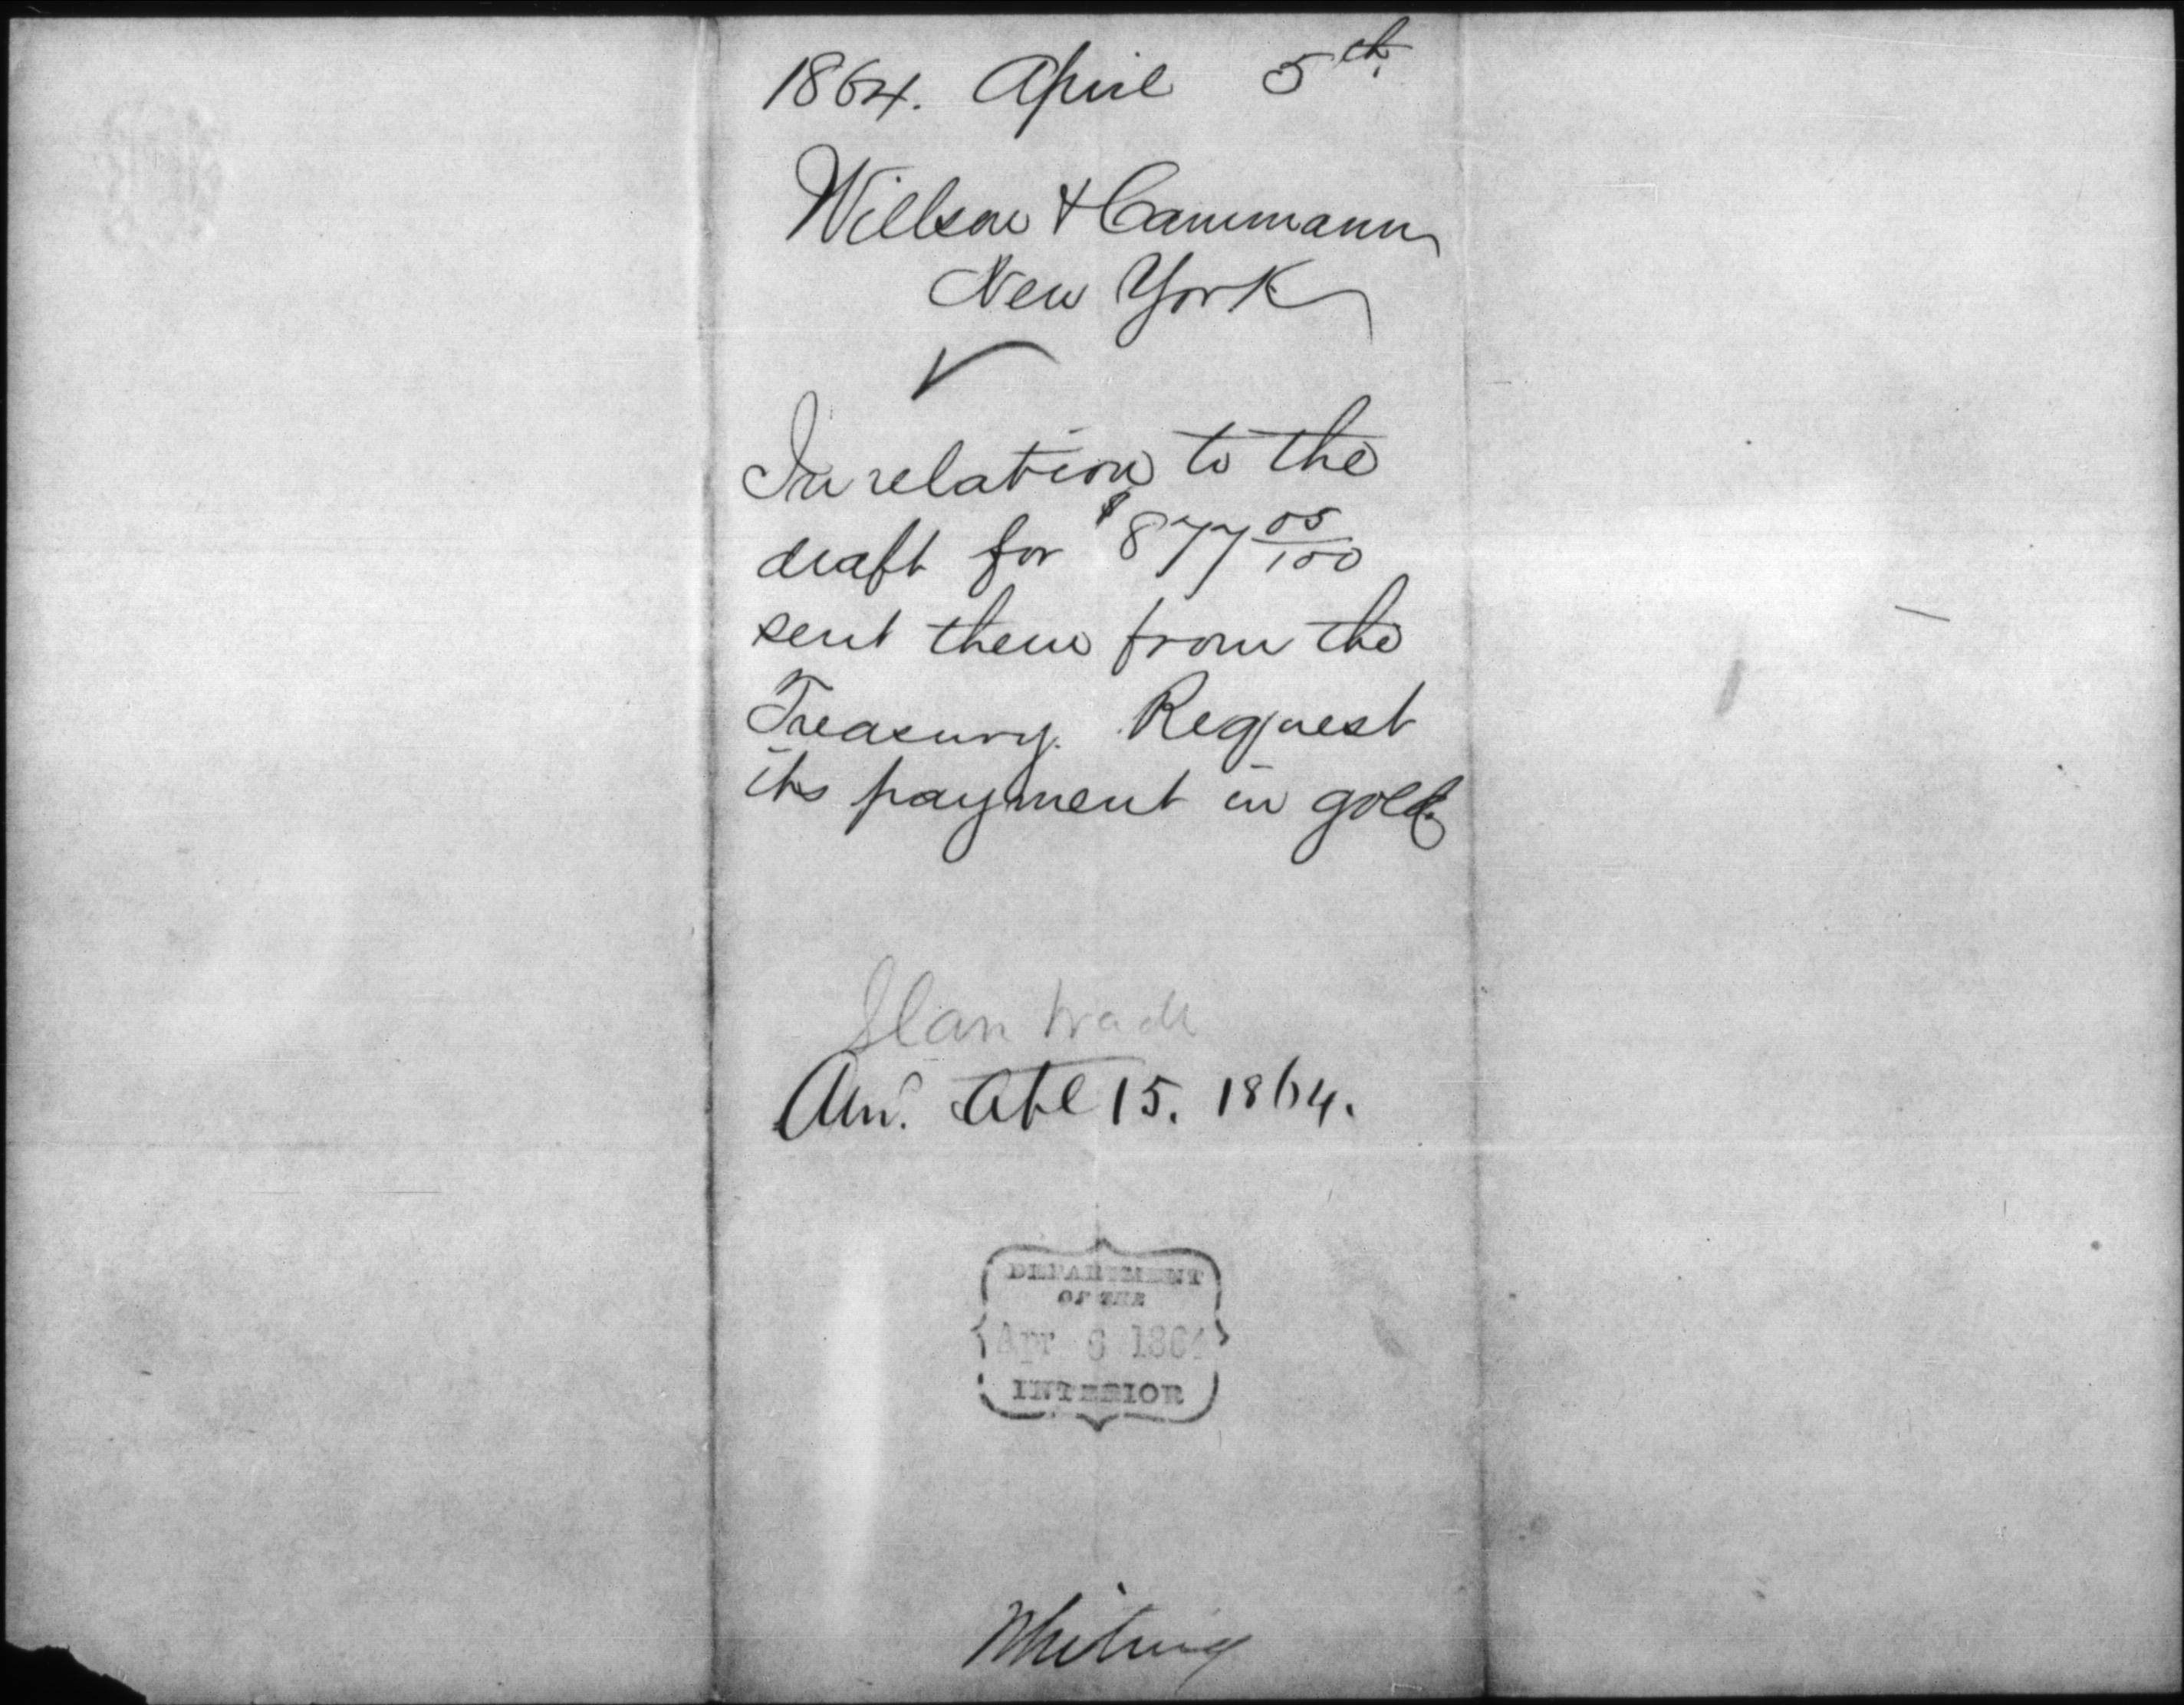 1864. April 5th.
Willson & Cammann
New York
In relation to the
draft for $877 05/100
sent them from the
Treasury. Request
its payment in gold.
Slave trade
Ansd. Apl 15. 1864.
DEPARTMENT
OF THE
Apr 6 1864
INTERIOR
Whiting